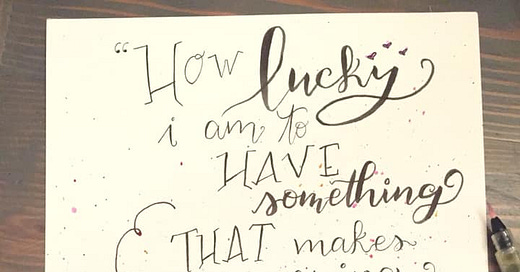 "How lucky
i am to
HAVE
something
THAT makes